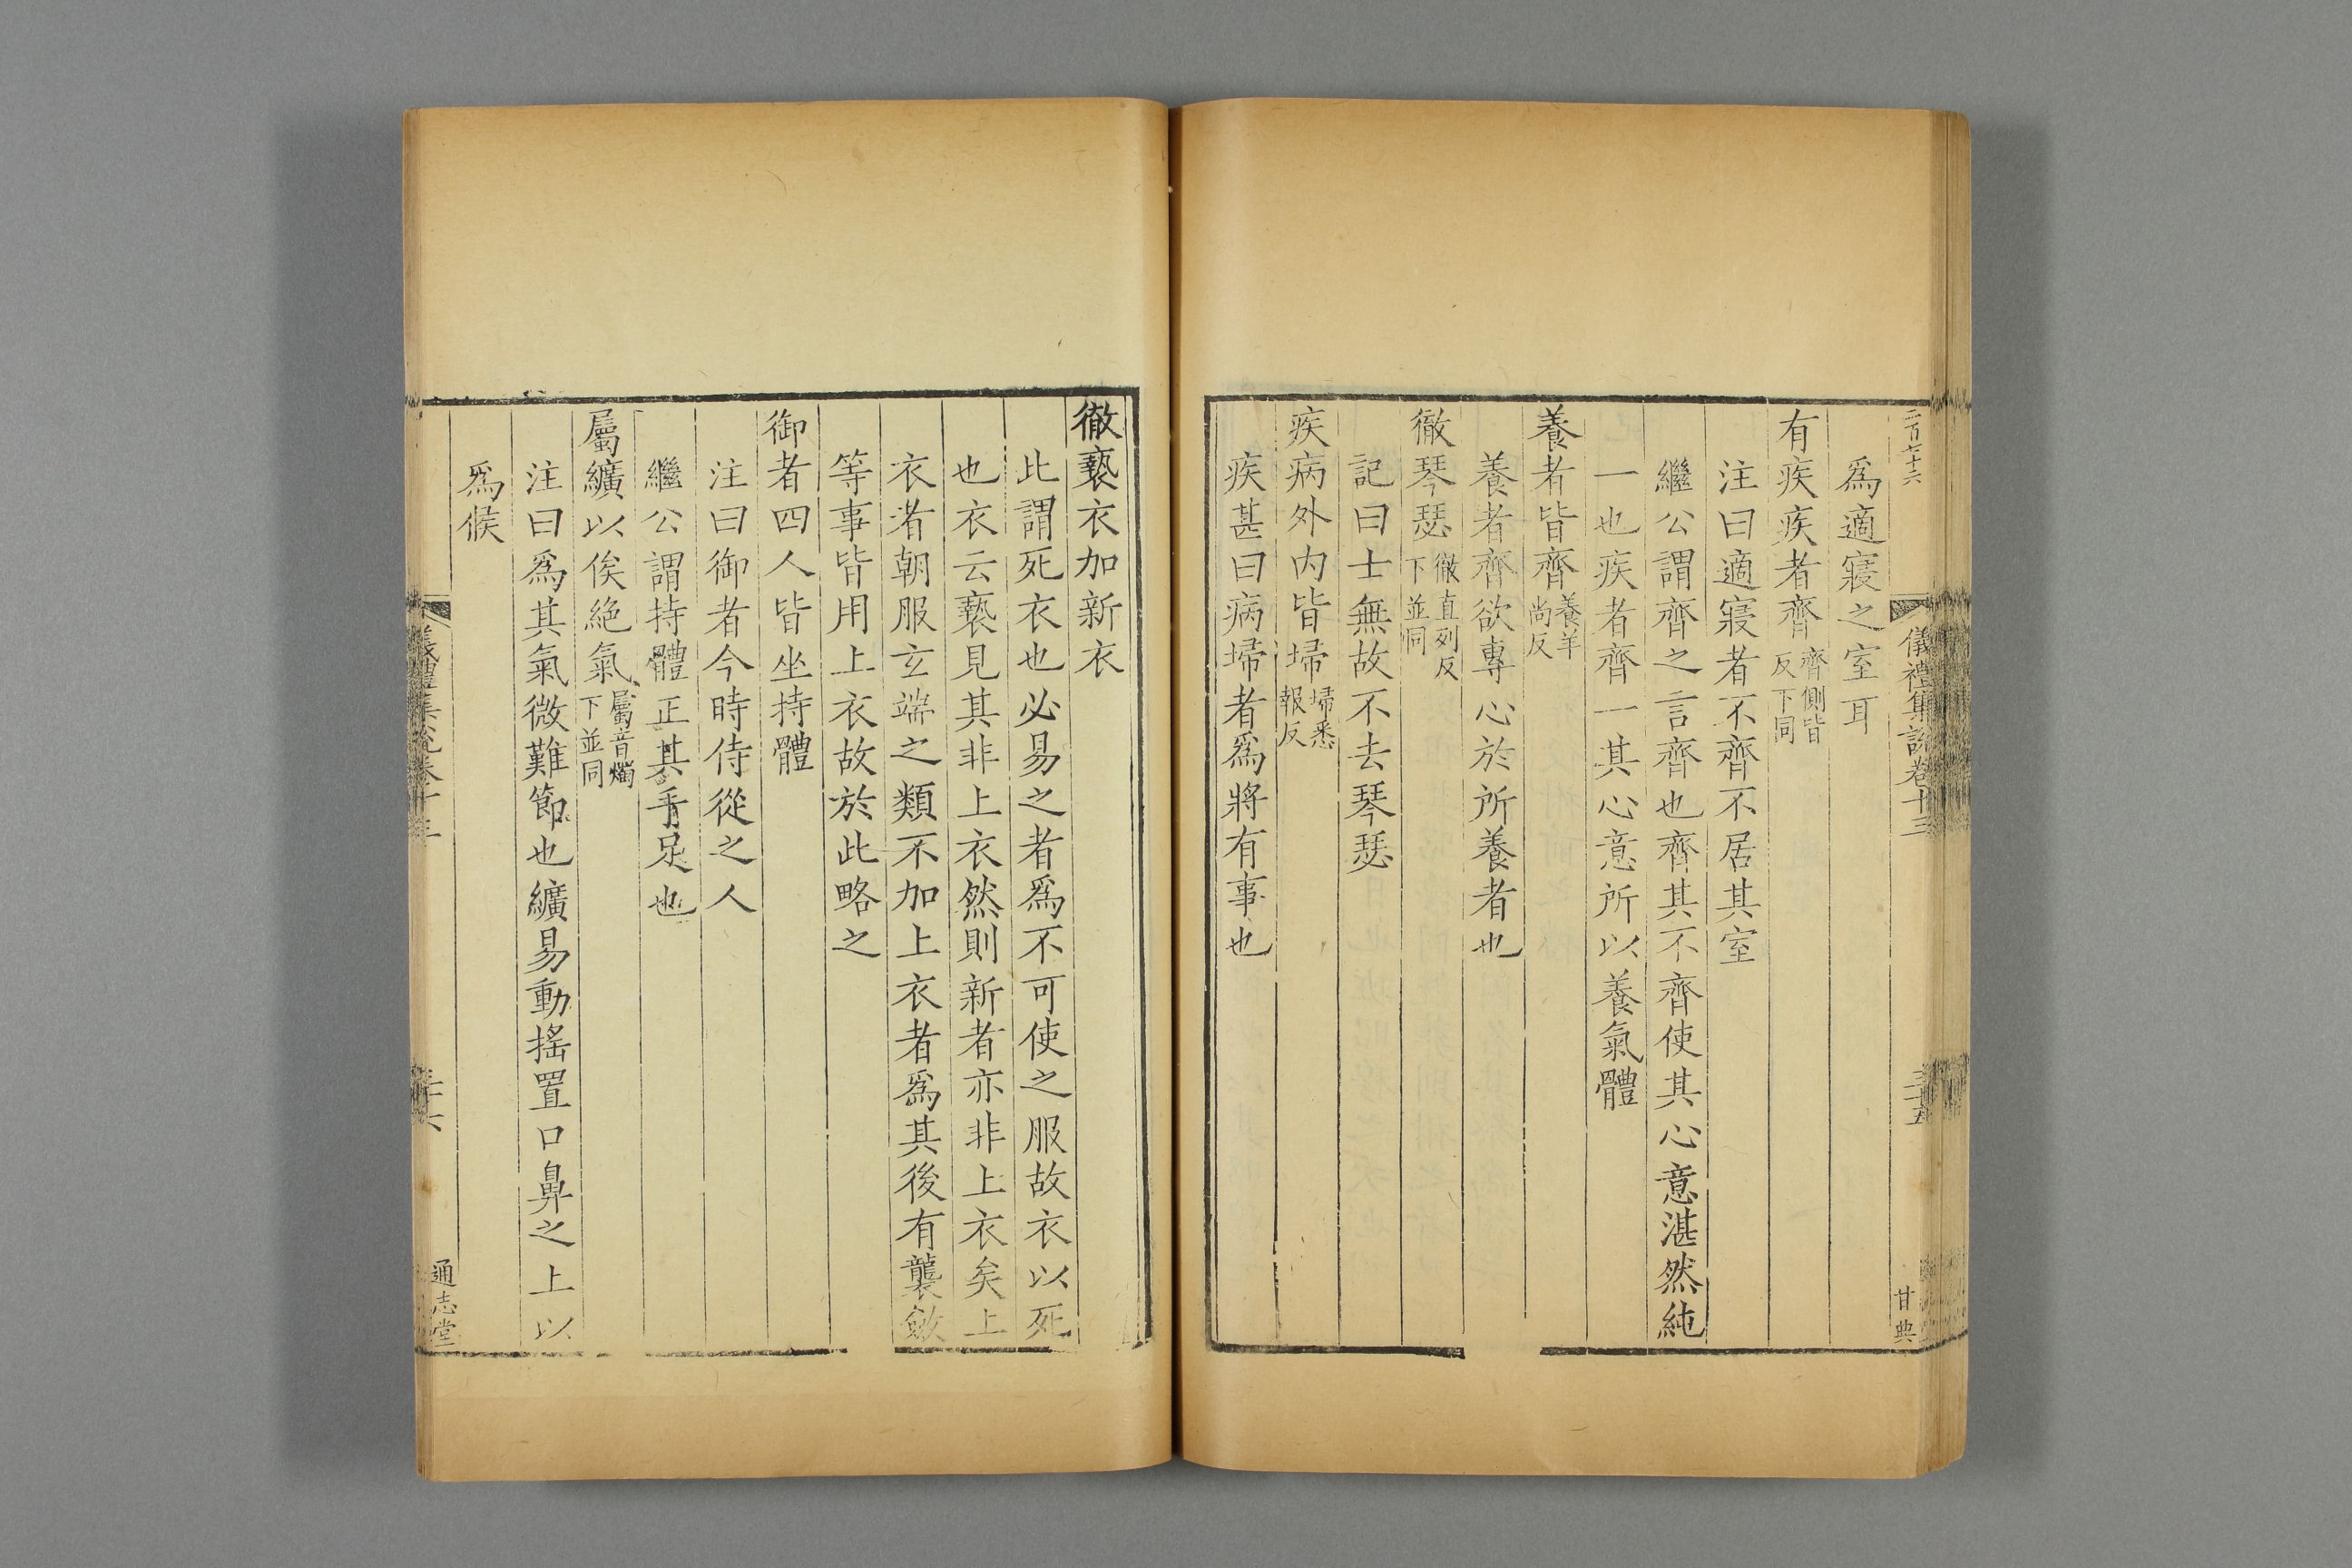 二百七十六
儀禮集說卷十三
三十五
甘典
爲適寢之室耳
有疾疾者齊齊側皆反下同
注曰適寢者不齊不居其室
繼公謂齊之言齊也齊其不齊使其心意湛然純
一也疾者齊一其心意所以養氣體
養者皆齊養羊尚反
養者齊欲專心於所養者也
徹琴瑟徹直列反下並同
記曰士無故不去琴瑟
疾病外内皆埽埽悉報反
疾甚曰病埽者爲將有事也
徹褻衣加新衣
此謂死衣也必易之者爲不可使之服故衣以死
也衣云褻見其非上衣然則新者亦非上衣矣上
衣者朝服玄端之類不加上衣者爲其後有襲斂
等事皆用上衣故於此略之
御者四人皆坐持體
注曰御者今時侍從之人
繼公謂持體正其手足也
屬纊以俟絶氣屬音燭下並同
注曰爲其氣微難節也纊易動搖置口鼻之上以
爲候
儀禮集說卷十三
三十六
通志堂